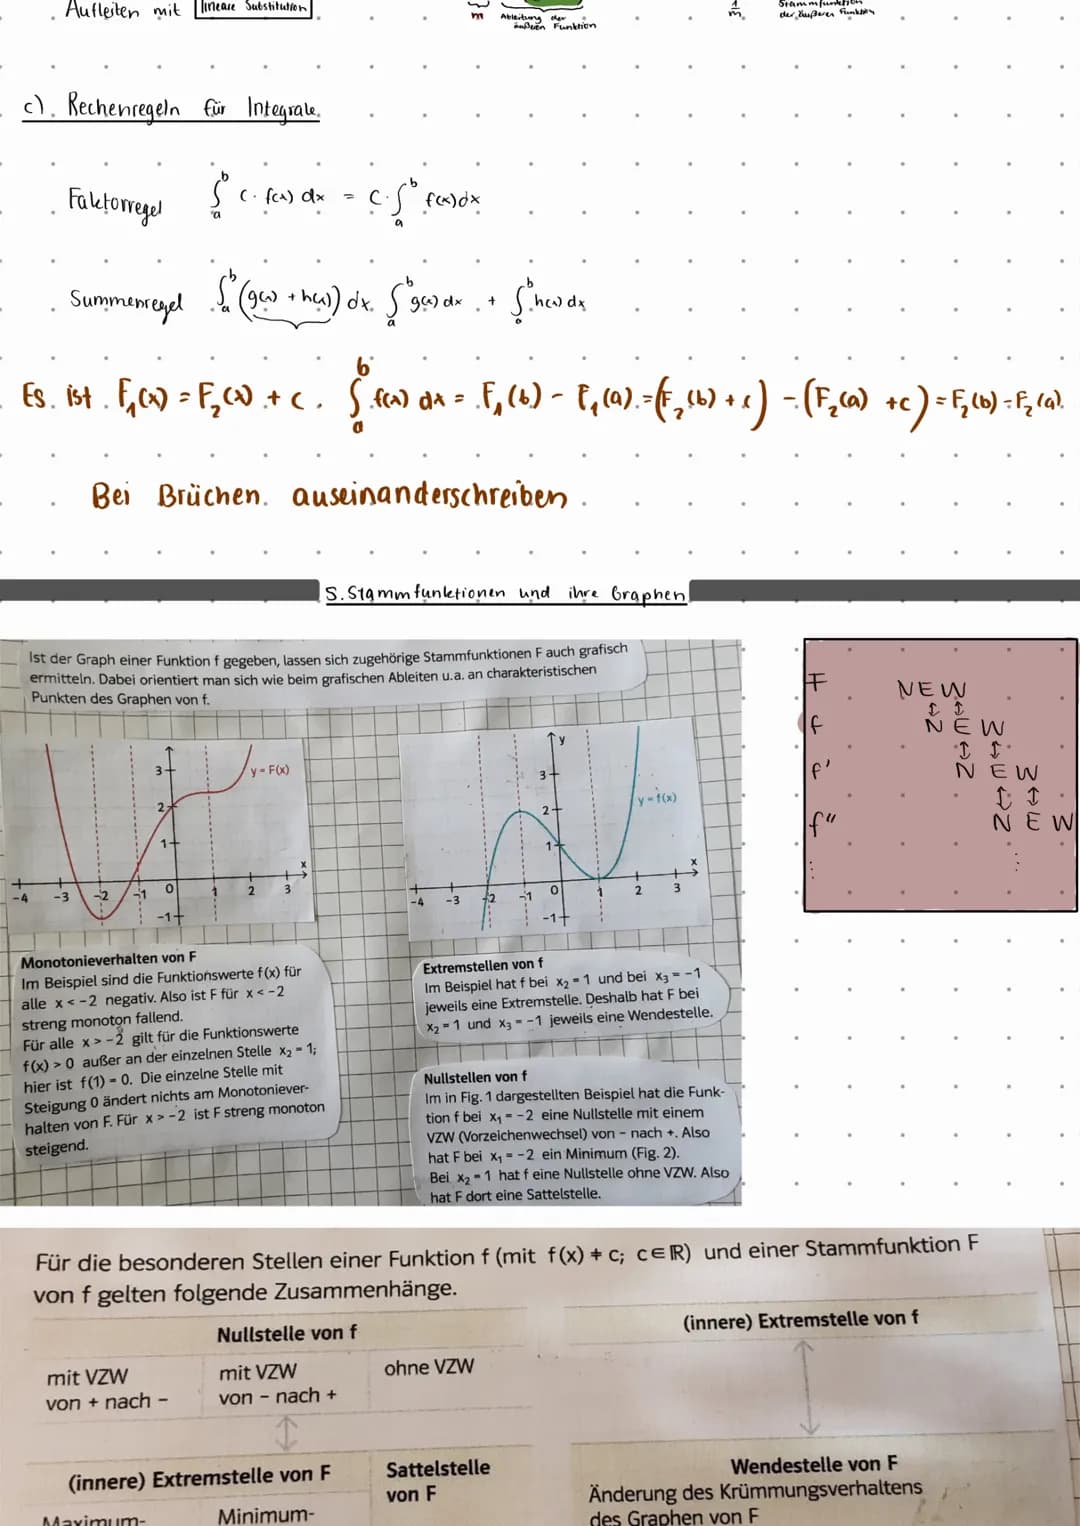 Aufleiten mit lineare Substitution
m Ableitung der äußeren Funktion
1/m Stammfunktion der äußeren Funktion
c). Rechenregeln für Integrale.
Faktorregel ∫ₐᵇ c · f(x) dx = c · ∫ₐᵇ f(x) dx
Summenregel ∫ₐᵇ (g(x) + h(x)) dx. ∫ₐᵇ g(x) dx + ∫ₐᵇ h(x) dx
Es ist F₁(x) = F₂(x) + c. ∫ₐᵇ f(x) dx = F₁(b) - F₁(a) = (F₂(b) + c) - (F₂(a) + c) = F₂(b) - F₂(a).
Bei Brüchen auseinanderschreiben
5. Stammfunktionen und ihre Graphen
Ist der Graph einer Funktion f gegeben, lassen sich zugehörige Stammfunktionen F auch grafisch
ermitteln. Dabei orientiert man sich wie beim grafischen Ableiten u.a. an charakteristischen
Punkten des Graphen von f.
3
2
1
0
-1
-4 -3 -2 -1 1 2 3
x
y = F(x)
y
3
2
1
0
-1
-4 -3 -2 -1 1 2 3
x
y = f(x)
F NEW
f NEW
f' NEW
f" NEW
Monotonieverhalten von F
Im Beispiel sind die Funktionswerte f(x) für
alle x < -2 negativ. Also ist F für x < -2
streng monoton fallend.
Für alle x > -2 gilt für die Funktionswerte
f(x) > 0 außer an der einzelnen Stelle x₂ = 1;
hier ist f(1) = 0. Die einzelne Stelle mit
Steigung 0 ändert nichts am Monotoniever-
halten von F. Für x > -2 ist F streng monoton
steigend.
Extremstellen von f
Im Beispiel hat f bei x₂ = 1 und bei x₃ = -1
jeweils eine Extremstelle. Deshalb hat F bei
x₂ = 1 und x₃ = -1 jeweils eine Wendestelle.
Nullstellen von f
Im in Fig. 1 dargestellten Beispiel hat die Funk-
tion f bei x₁ = -2 eine Nullstelle mit einem
VZW (Vorzeichenwechsel) von - nach +. Also
hat F bei x₁ = -2 ein Minimum (Fig. 2).
Bei x₂ = 1 hat f eine Nullstelle ohne VZW. Also
hat F dort eine Sattelstelle.
Für die besonderen Stellen einer Funktion f (mit f(x) ≠ c; c∈ℝ) und einer Stammfunktion F
von f gelten folgende Zusammenhänge.
Nullstelle von f
(innere) Extremstelle von f
mit VZW
von + nach -
mit VZW
von - nach +
ohne VZW
(innere) Extremstelle von F
Sattelstelle
von F
Wendestelle von F
Änderung des Krümmungsverhaltens
des Graphen von F
Maximum-
Minimum-